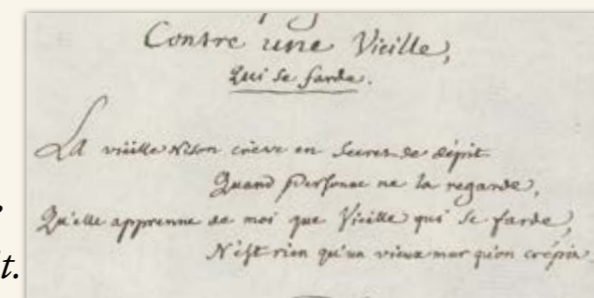 Contre une Vieille,
Qui se farde.
La vieille Nison crève en secret de dépit
Quand personne ne la regarde,
Qu'elle apprenne de moi que Vieille qui se farde,
N'est rien qu'un vieux mur qu'on crépit.
t.